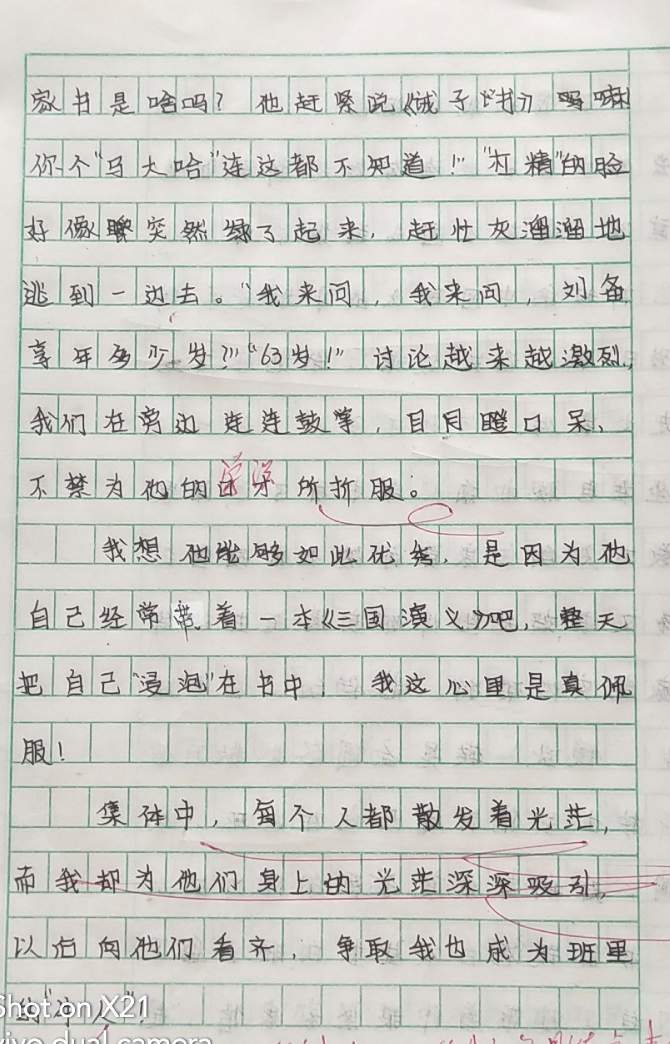 家书是啥吗？他赶紧说《诫子书》吗嘛
你个“马大哈”连这都不知道！”“杠精”的脸
好像突然绿了起来，赶忙灰溜溜地
逃到一边去。“我来问，我来问，刘备
享年多少岁？”“63岁！”讨论越来越激烈，
我们在旁边连连鼓掌，目目瞪口呆、
不禁为他的所折服。
我想他能够如此优秀，是因为他
自己经常带着一本《三国演义》吧，整天
把自己“浸泡”在书中，我这心里是真佩
服！
集体中，每个人都散发着光茫，
而我却为他们身上的光茫深深吸引，
以后向他们看齐，争取我也成为班里
的
Shot on X21
vivo dual camera